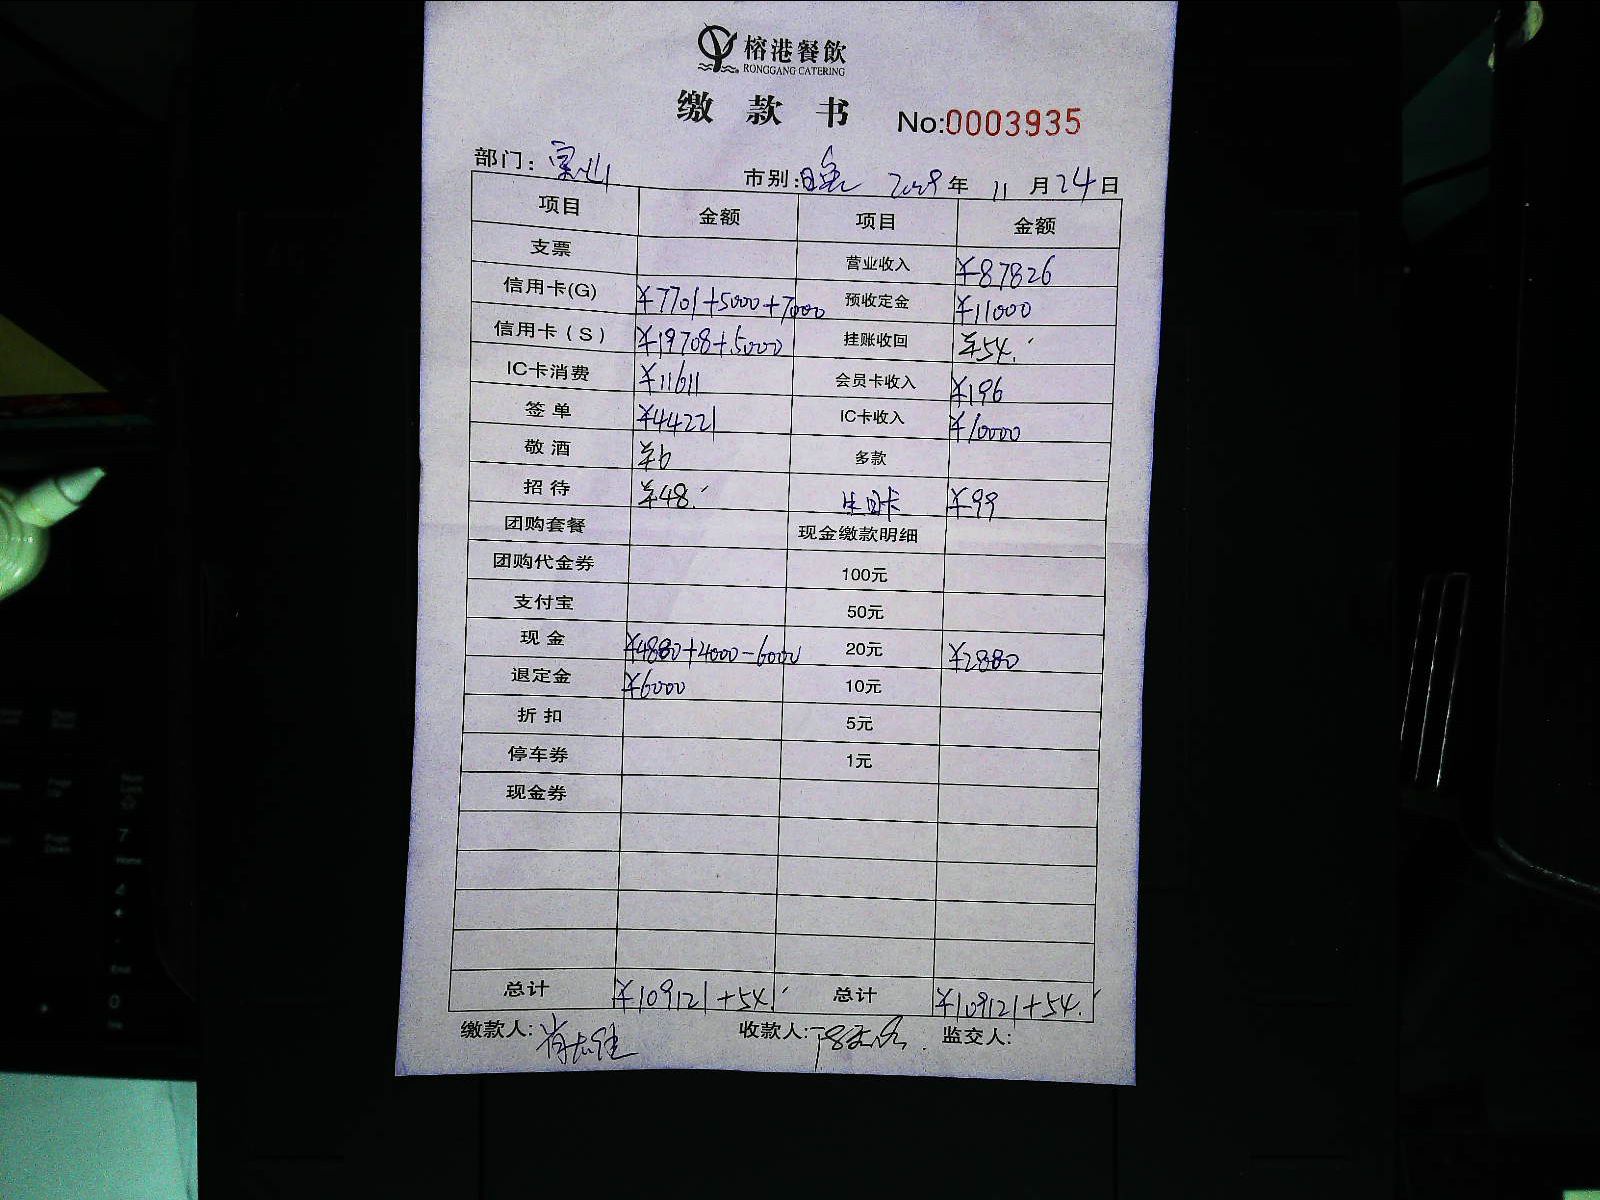 榕港餐飲
RONGGANG CATERING
缴款书 No:0003935
部门: 宝山 市别: 年 11 月 24 日
项目 金额 项目 金额
支票 营业收入 ¥87826
信用卡(G) ¥7701+5000+7000 预收定金 ¥11000
信用卡(S) ¥19708+5000 挂账收回 ¥54.
IC卡消费 ¥11611 会员卡收入 ¥196
签单 ¥44221 IC卡收入 ¥10000
敬酒 ¥6 多款
招待 ¥48. 生日卡 ¥99
团购套餐 现金缴款明细
团购代金券 100元
支付宝 50元
现金 ¥4880+4000-6000 20元 ¥2880
退定金 ¥6000 10元
折扣 5元
停车券 1元
现金券
总计 ¥109121+54. 总计 ¥109121+54.
缴款人: 收款人: 监交人:
7
Home
4
End
0
Ins
Page Up
Page Down
Num Lock